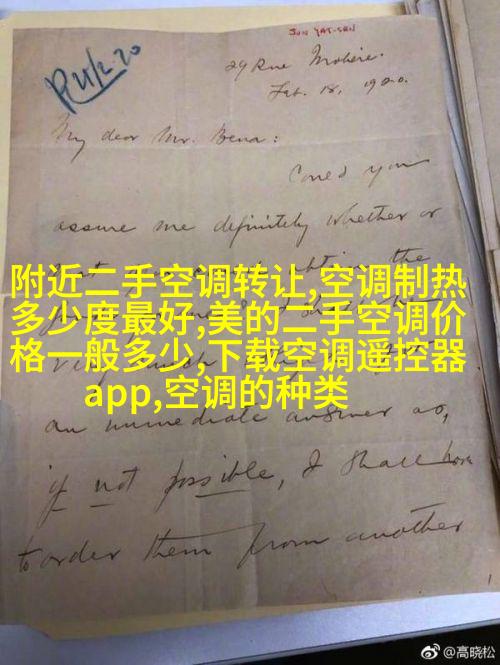 SUN YAT-SEN
R 21/2.20
29 Rue Molière.
Feb. 18, 1920.
My dear Mr. Bena:
Could you
assure me definitely whether or
附近二手空调转让,空调制热
多少度最好,美的二手空调价
格一般多少,下载空调遥控器
app,空调的种类
an immediate answer as,
if not possible, I shall have
to order them from another
@高晓松